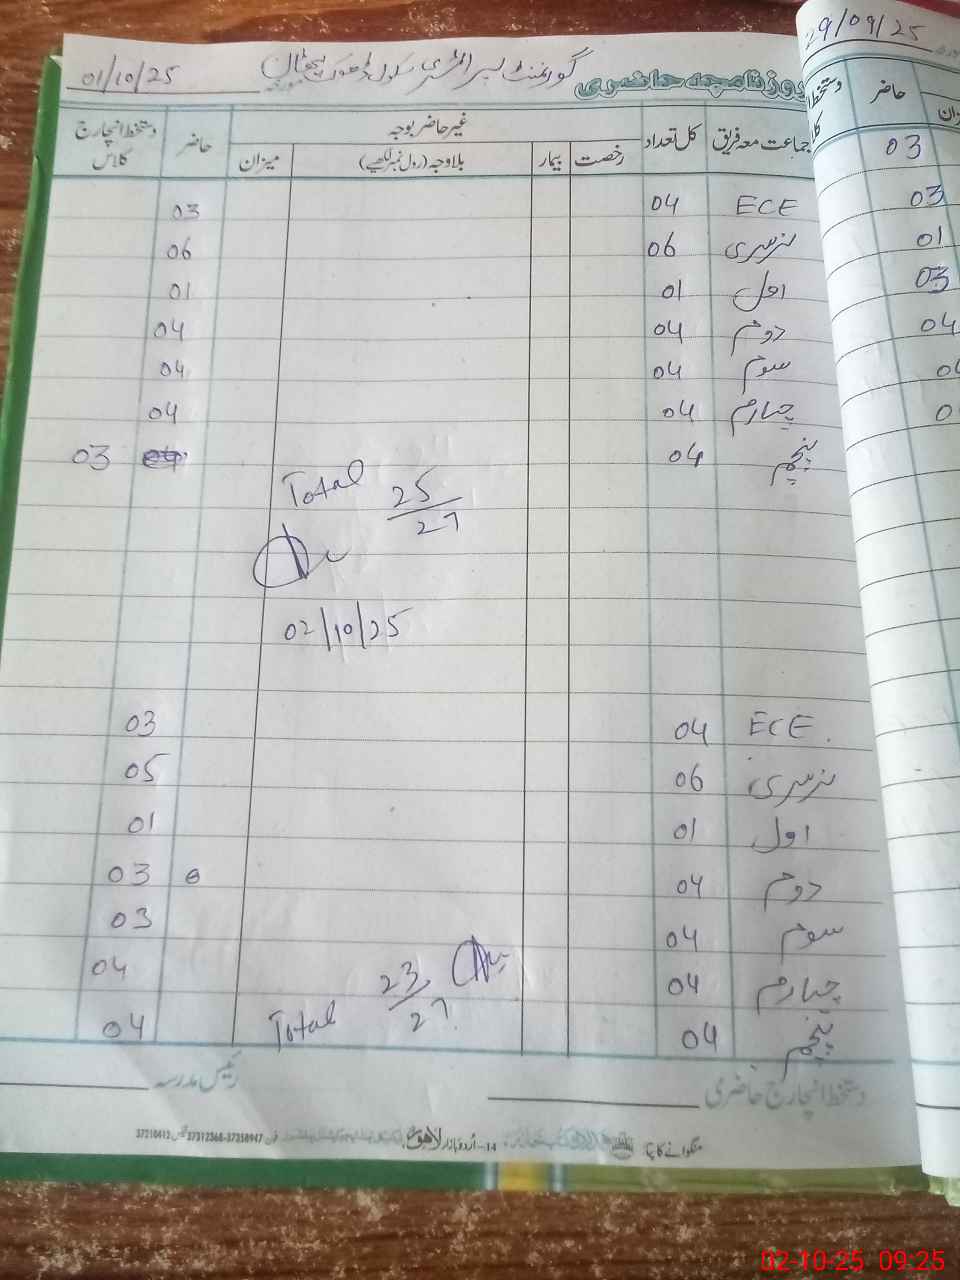 روزنامچہ حاضری گورنمنٹ پرائمری سکول ڈھوک پٹھان مورخہ 01/10/25
جماعت معہ فریق کل تعداد غیر حاضر بوجہ حاضر دستخط انچارج کلاس
رخصت بیمار بلاوجہ (رول نمبر لکھیے) میزان
ECE 04 03
نرسری 06 06
اول 01 01
دوم 04 04
سوم 04 04
چہارم 04 04
پنجم 04 03
Total 25/27
02/10/25
ECE. 04 03
نرسری 06 05
اول 01 01
دوم 04 03
سوم 04 03
چہارم 04 04
پنجم 04 04
Total 23/27
دستخط انچارج حاضری رئیس مدرسہ
منگوانے کا پتہ: 14-اُردو بازار لاہور فون 37358947-37312368 37210412
29/09/25
دستخط حاضر میزان
03
03
01
03
04
02-10-25 09:25